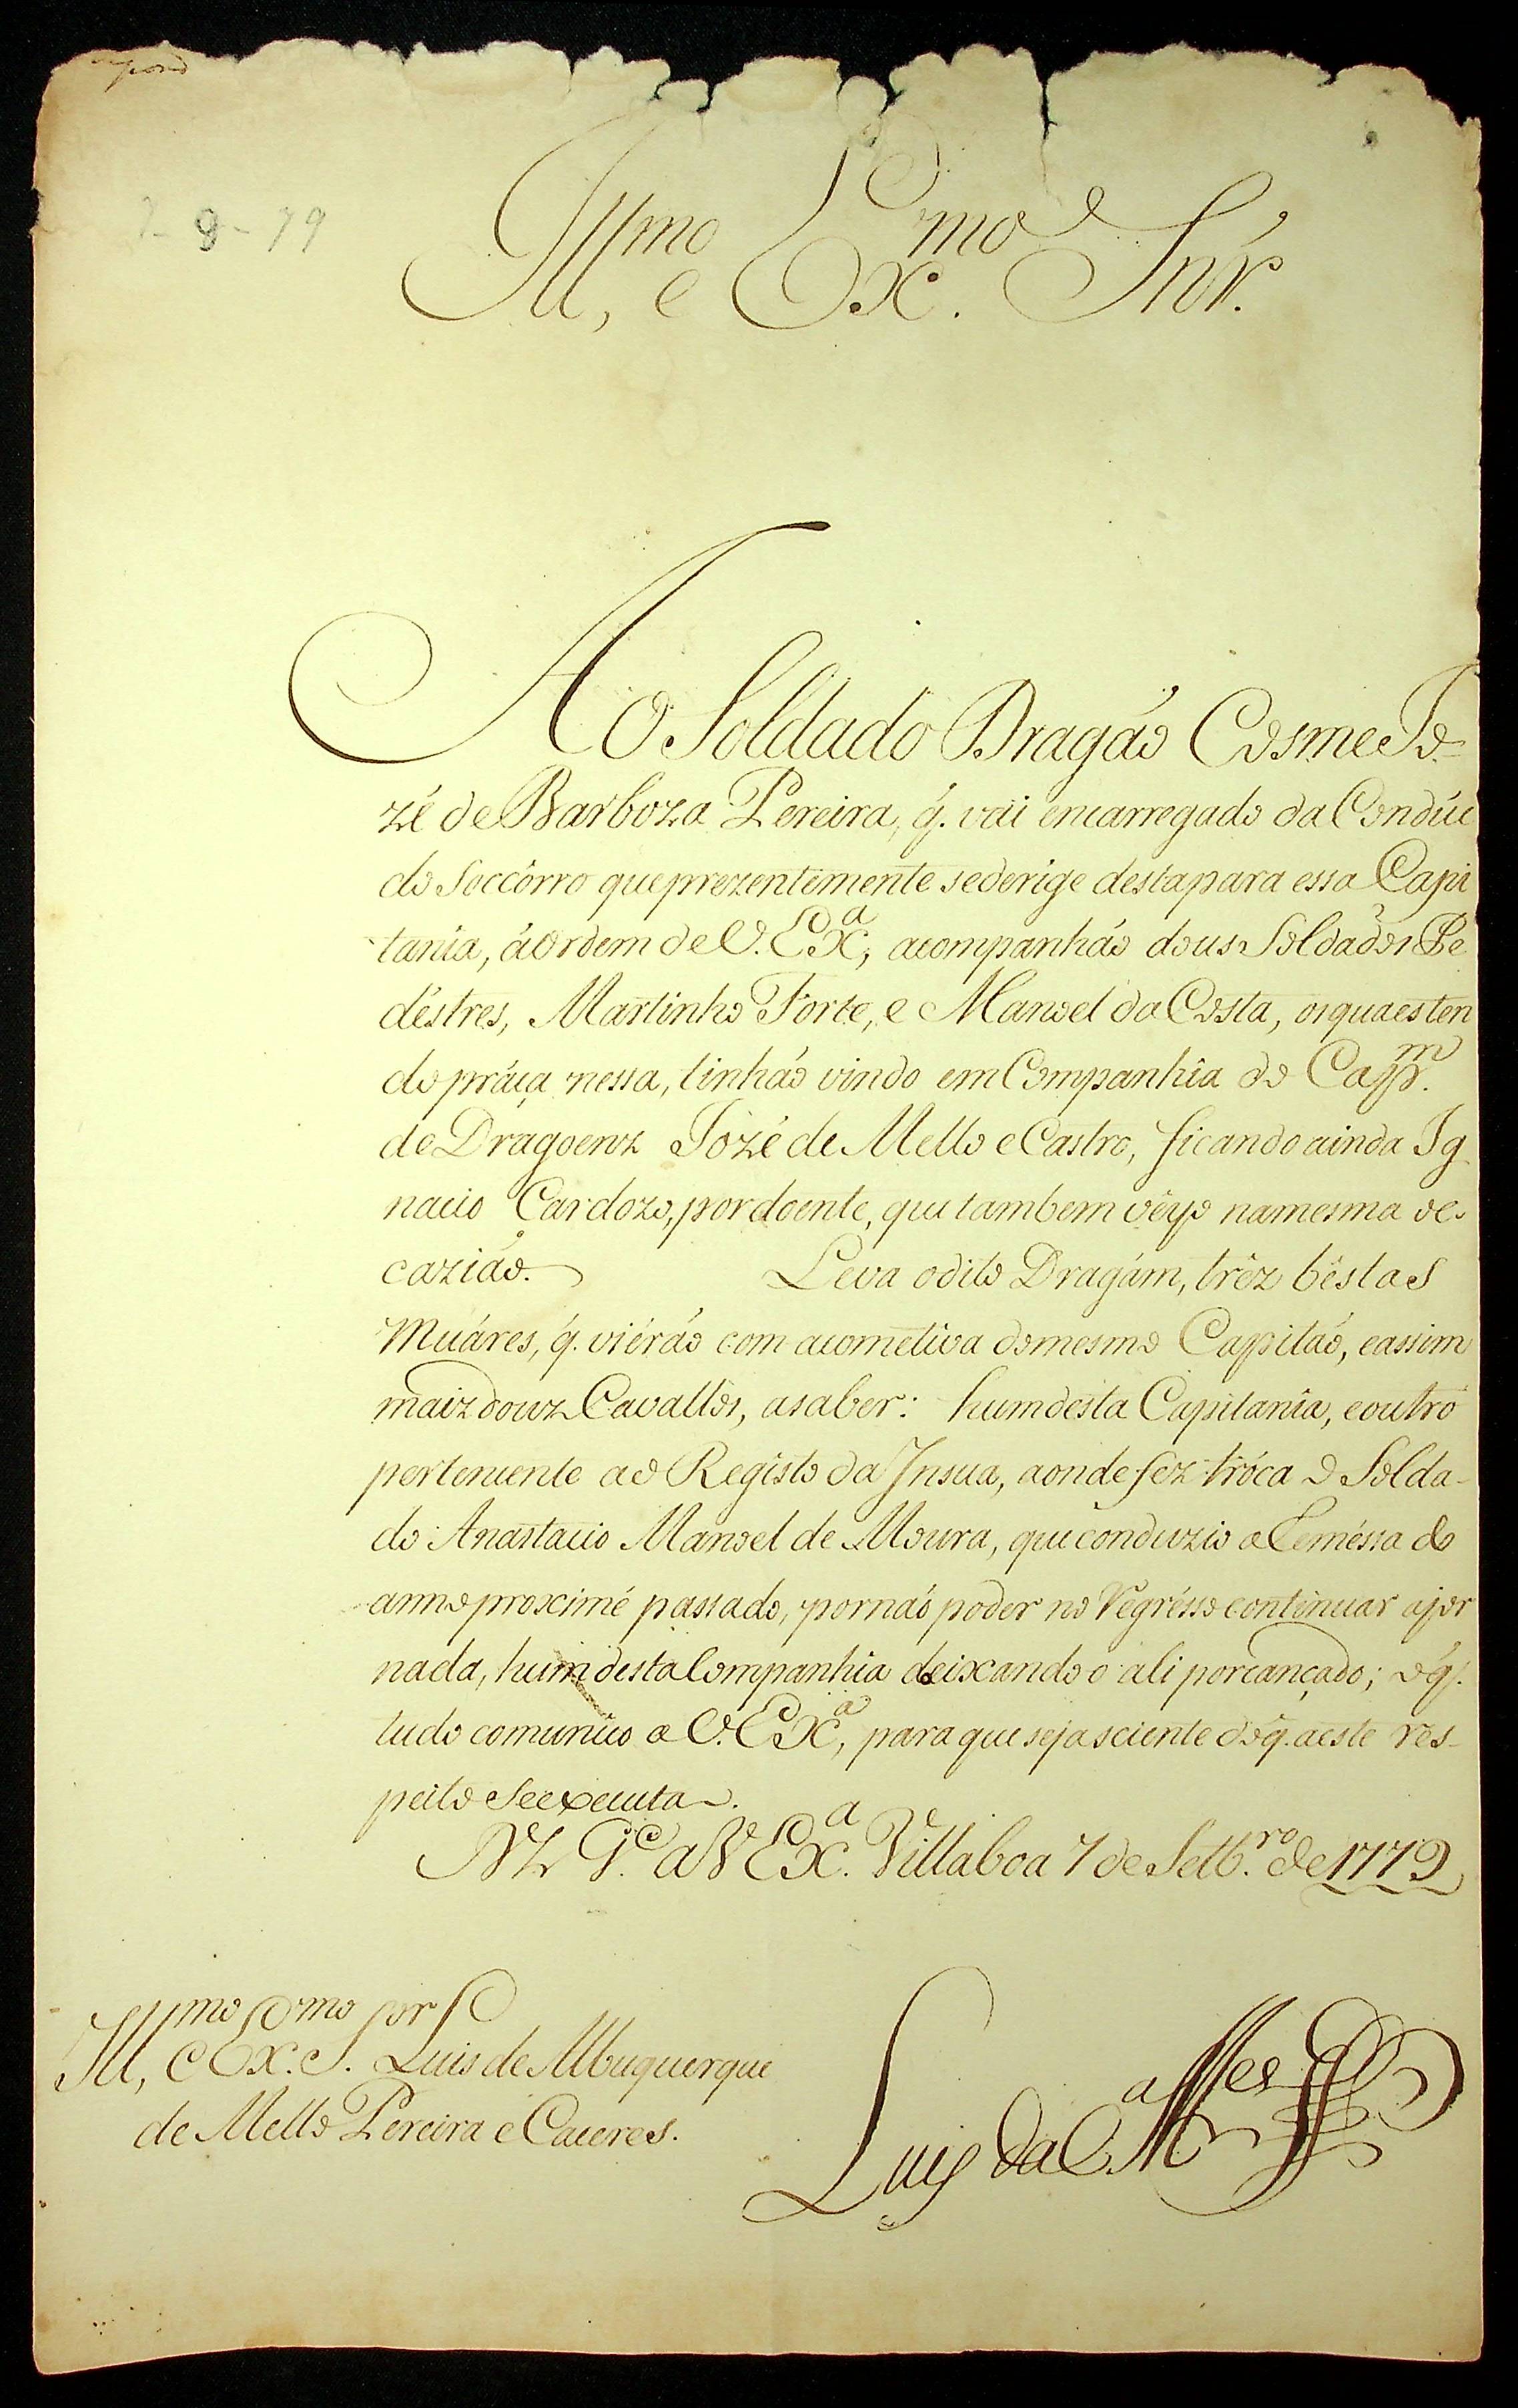 7-9-79
Ill.mo, e Ex.mo Snr.
Ao Soldado Dragáo Cosme Jo-
zé de Barboza Pereira, q. vai encarregado da Condúc
do Soccôrro que prezentemente se derige desta para essa Capi
tanîa, á Ordem de V. Ex.a, acompanháo dous Soldados Pe
déstres, Martinho Forte, e Manoel da Costa, os quaes ten
do práça nessa, tinháo vindo em Companhîa do Capp.m
de Dragoenz Jozé de Mello e Castro, ficando ainda Ig
nacio Cardozo, por doente, que tambem vêyo na mesma oc-
caziáo. Leva o dito Dragám, trêz béstas
Muáres, q. viéráo com a cometiva do mesmo Capitáo, e assim
maiz douz Cavallos, a saber: hum desta Capitanîa, e outro
pertencente ao Registo da Insua, aonde fez tróca o Solda-
do Anastacio Manoel de Moura, que conduzio a Reméssa do
anno proximé passado, por náo poder no Regrésso continuar a jor
nada, hum desta Companhia deixando o ali por cançado; o q.
tudo comunico a V. Ex.a, para que seja sciente do q. a este res-
peito se executa.
N.S. G.e a V Ex.a Villaboa 7 de Setb.ro de 1779
Ill.mo, e Ex.mo S.or Luis de Albuquerque
de Mello Pereira e Caceres.
Luis da C.a M.es